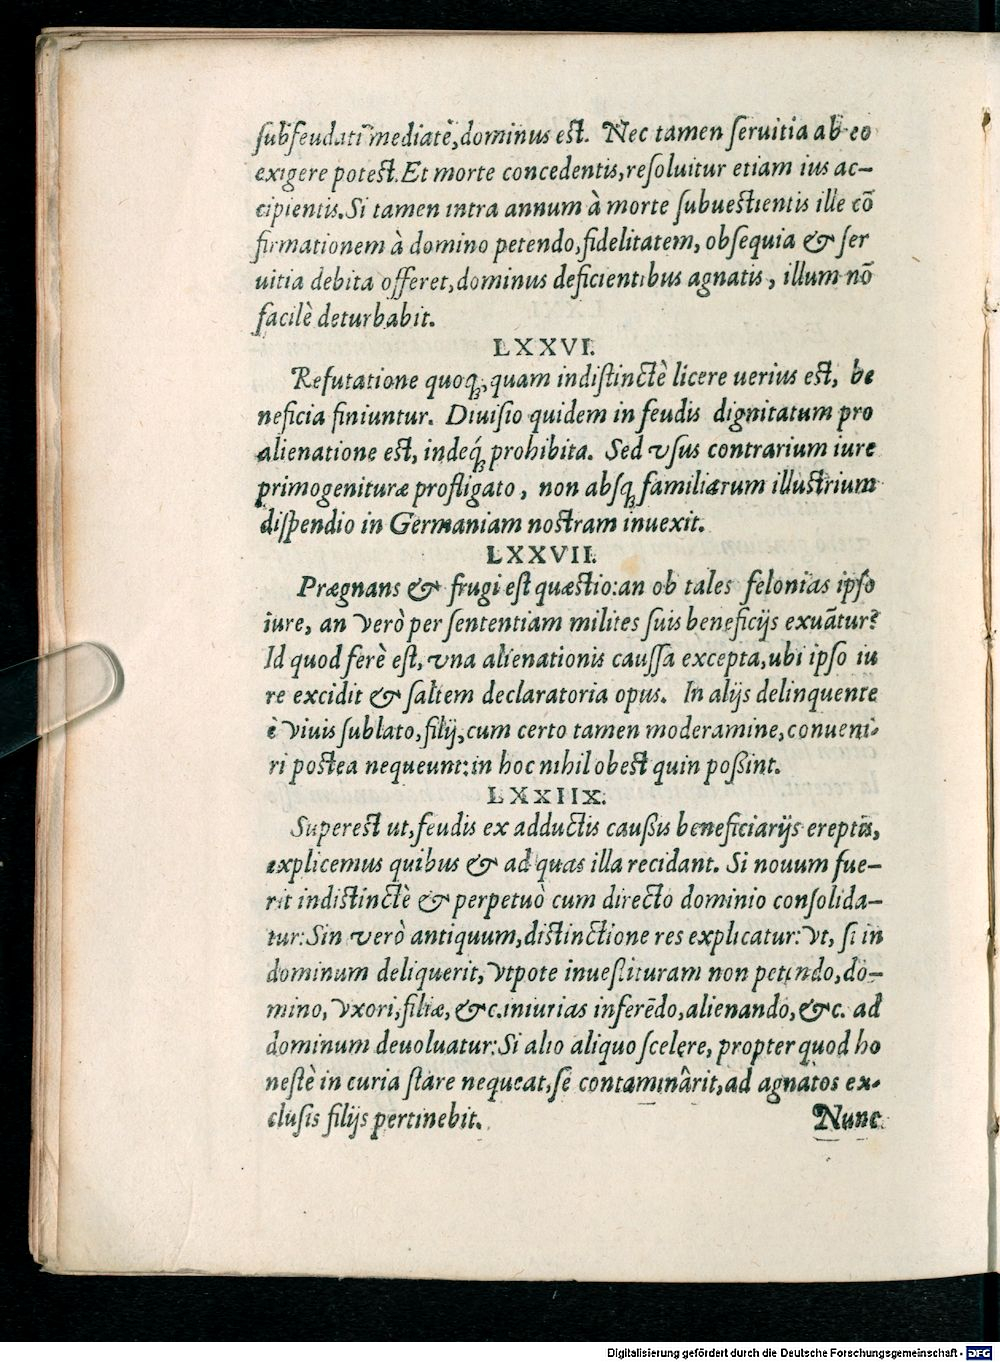 subfeudati mediatè, dominus est. Nec tamen seruitia ab eo
exigere potest. Et morte concedentis, resoluitur etiam ius ac-
cipientis. Si tamen intra annum à morte subuestientis ille cō
firmationem à domino petendo, fidelitatem, obsequia & ser
uitia debita offeret, dominus deficientibus agnatis, illum nō
facilè deturbabit.
LXXVI.
Refutatione quoq;, quam indistinctè licere uerius est, be
neficia finiuntur. Diuisio quidem in feudis dignitatum pro
alienatione est, indeq́; prohibita. Sed vsus contrarium iure
primogenituræ profligato, non absq; familiarum illustrium
dispendio in Germaniam nostram inuexit.
LXXVII.
Prægnans & frugi est quæstio: an ob tales felonias ipso
iure, an verò per sententiam milites suis beneficijs exuātur?
Id quod ferè est, vna alienationis caussa excepta, ubi ipso iu
re excidit & saltem declaratoria opus. In alijs delinquente
è viuis sublato, filij, cum certo tamen moderamine, conueni-
ri postea nequeunt: in hoc nihil obest quin poßint.
LXXIIX.
Superest ut, feudis ex adductis caußis beneficiarijs ereptis,
explicemus quibus & ad quas illa recidant. Si nouum fue-
rit indistinctè & perpetuò cum directo dominio consolida-
tur: Sin verò antiquum, distinctione res explicatur: Vt, si in
dominum deliquerit, vtpote inuestituram non petendo, do-
mino, vxori, filiæ, &c. iniurias inferēdo, alienando, &c. ad
dominum deuoluatur: Si alio aliquo scelere, propter quod ho
nestè in curia stare nequeat, se contaminârit, ad agnatos ex-
clusis filijs pertinebit.
Nunc
Digitalisierung gefördert durch die Deutsche Forschungsgemeinschaft - DFG